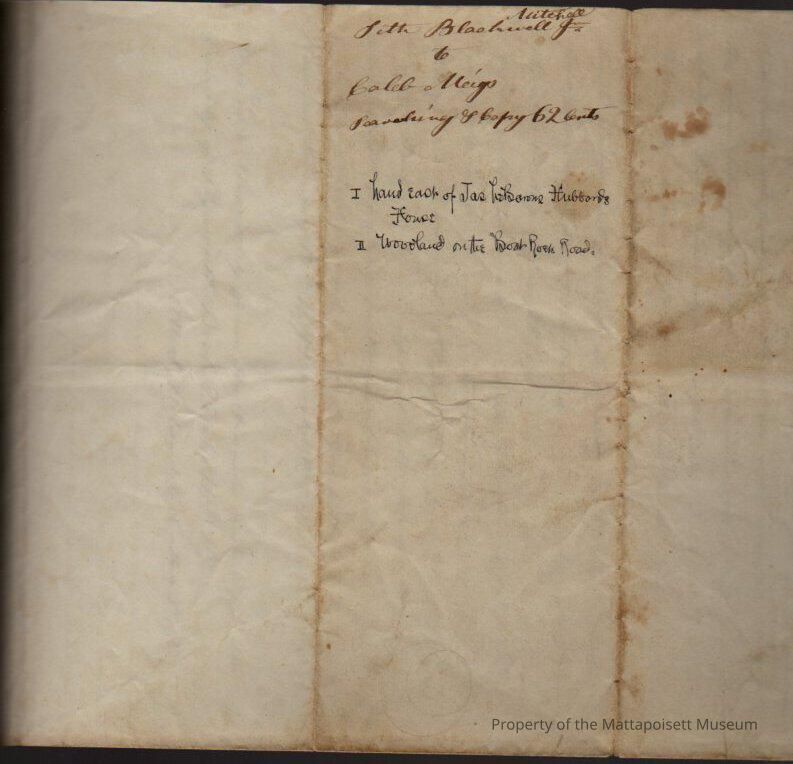 Mitchell
Seth Blackwell Jr
to
Caleb Meigs
Searching & Copy 62 Cents
I Land East of Jas Hubbards
House
II Woodland on the Boat Rock Road.
Property of the Mattapoisett Museum